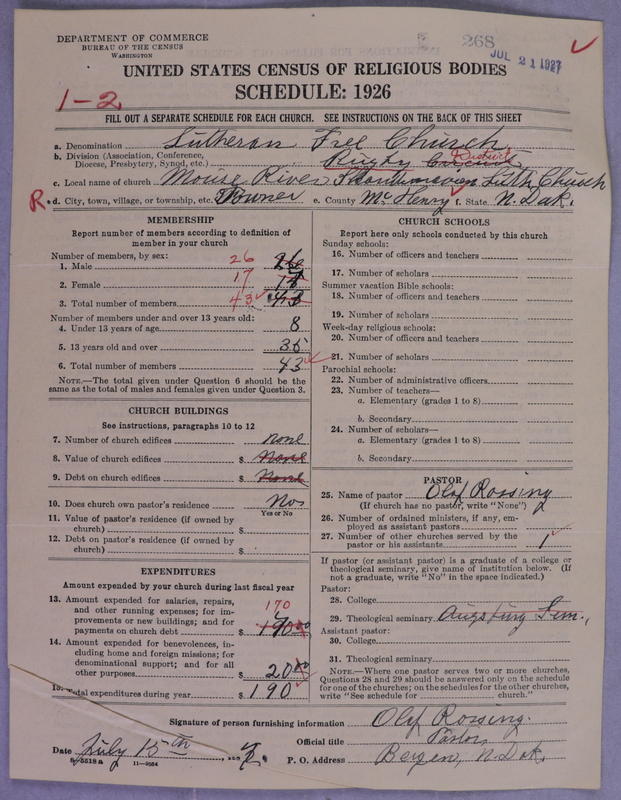 DEPARTMENT OF COMMERCE
BUREAU OF THE CENSUS
WASHINGTON
268
JUL 21 1927
UNITED STATES CENSUS OF RELIGIOUS BODIES
SCHEDULE: 1926
1-2
FILL OUT A SEPARATE SCHEDULE FOR EACH CHURCH. SEE INSTRUCTIONS ON THE BACK OF THIS SHEET
a. Denomination Lutheran Free Church
b. Division (Association, Conference, Diocese, Presbytery, Synod, etc.) Rugby District
c. Local name of church Mouse River Skandinavian Luth Church
R d. City, town, village, or township, etc. Towner e. County McHenry f. State N. Dak.
MEMBERSHIP
Report number of members according to definition of member in your church
Number of members, by sex:
1. Male 26 26
2. Female 17 17
3. Total number of members 43 43
Number of members under and over 13 years old:
4. Under 13 years of age 8
5. 13 years old and over 35
6. Total number of members 43
NOTE.—The total given under Question 6 should be the same as the total of males and females given under Question 3.
CHURCH BUILDINGS
See instructions, paragraphs 10 to 12
7. Number of church edifices none
8. Value of church edifices $ None
9. Debt on church edifices $ None
10. Does church own pastor's residence No
Yes or No
11. Value of pastor's residence (if owned by church) $
12. Debt on pastor's residence (if owned by church) $
EXPENDITURES
Amount expended by your church during last fiscal year
13. Amount expended for salaries, repairs, and other running expenses; for improvements or new buildings; and for payments on church debt $ 170 190 00
14. Amount expended for benevolences, including home and foreign missions; for denominational support; and for all other purposes $ 20 00
15. Total expenditures during year $ 190
CHURCH SCHOOLS
Report here only schools conducted by this church
Sunday schools:
16. Number of officers and teachers
17. Number of scholars
Summer vacation Bible schools:
18. Number of officers and teachers
19. Number of scholars
Week-day religious schools:
20. Number of officers and teachers
21. Number of scholars
Parochial schools:
22. Number of administrative officers
23. Number of teachers—
a. Elementary (grades 1 to 8)
b. Secondary
24. Number of scholars—
a. Elementary (grades 1 to 8)
b. Secondary
PASTOR
25. Name of pastor Olof Rossing
(If church has no pastor, write "None")
26. Number of ordained ministers, if any, employed as assistant pastors
27. Number of other churches served by the pastor or his assistants 1
If pastor (or assistant pastor) is a graduate of a college or theological seminary, give name of institution below. (If not a graduate, write "No" in the space indicated.)
Pastor:
28. College
29. Theological seminary Augsburg Sem.,
Assistant pastor:
30. College
31. Theological seminary
NOTE.—Where one pastor serves two or more churches, Questions 28 and 29 should be answered only on the schedule for one of the churches; on the schedules for the other churches, write "See schedule for church."
Signature of person furnishing information Olof Rossing.
Official title Pastor
Date July 15th, 192
P. O. Address Bergen, N. Dak.
8-5518a 11-9084